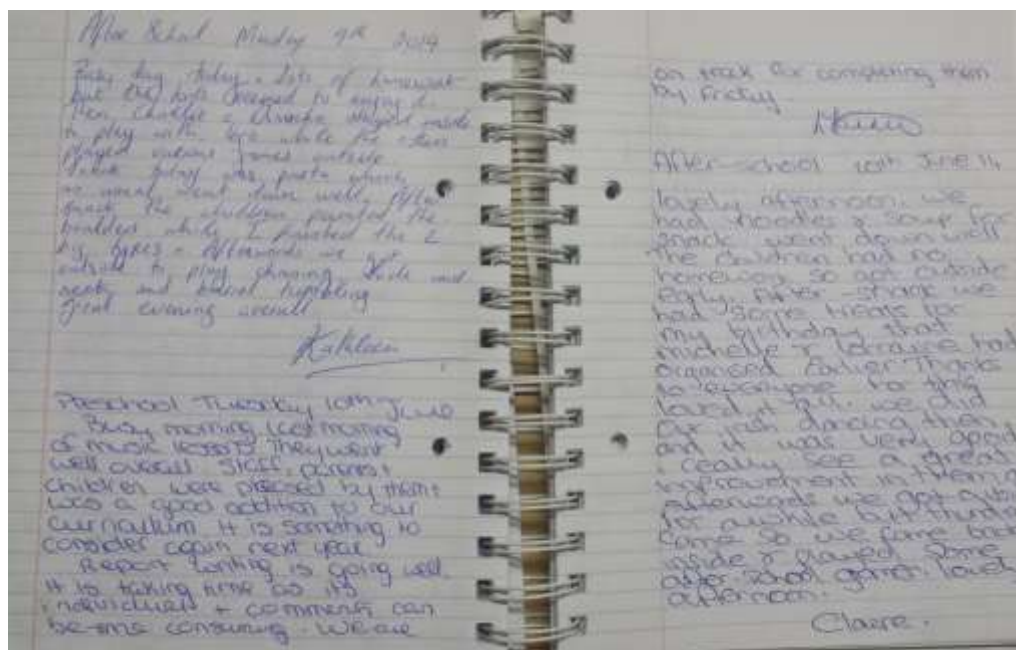 After School Monday 9th 2014
Busy day today. lots of homework
but the boys seemed to enjoy it.
Charlie stayed inside
to play with lego while the others
played various games outside.
Snack today was pasta which
as usual went down well. After
snack the children painted the
boulders while I painted the 2
big tyres. Afterwards we got
outside to play chasing, hide and
seek and
great evening overall
Kathleen
Preschool Tuesday 10th June
Busy morning last morning
of music lessons. They went
well overall. Staff, parents +
children were pleased by them +
was a good addition to our
curriculum it is something to
consider again next year.
Report writing is going well.
It is taking time as its
individual + comments can
be time consuming. We are
on track for completing them
by Friday.
After-school 10th June 14
lovely afternoon. we
had noodles & soup for
snack went down well
The children had no
homework so got outside
early. After-snack we
had some treats for
my birthday that
michelle & lorraine had
organised earlier Thanks
to everyone for this
loved it All. we did
our irish dancing then
and it was very good
i really see a great
improvement in them.
afterwards we got outside
for awhile but thunder
came so we came back
inside & played some
after-school games. lovely
afternoon.
Claire.